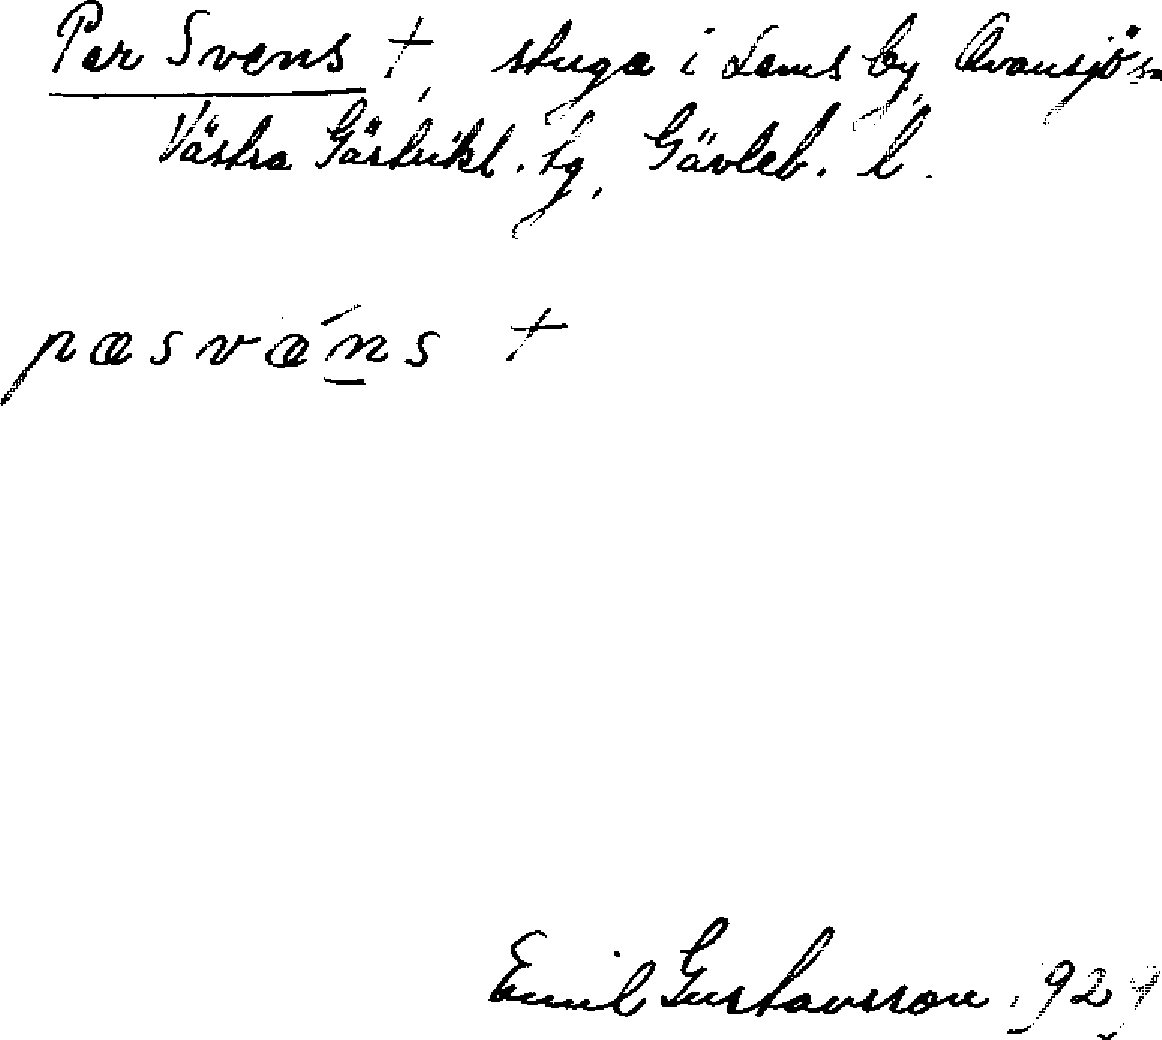 Per Svens †, stuga i Lems by, Ovansjö sn
Västra Gästrikl. tg, Gävleb. l.
pæsvǽns †
Emil Gustavsson. 192